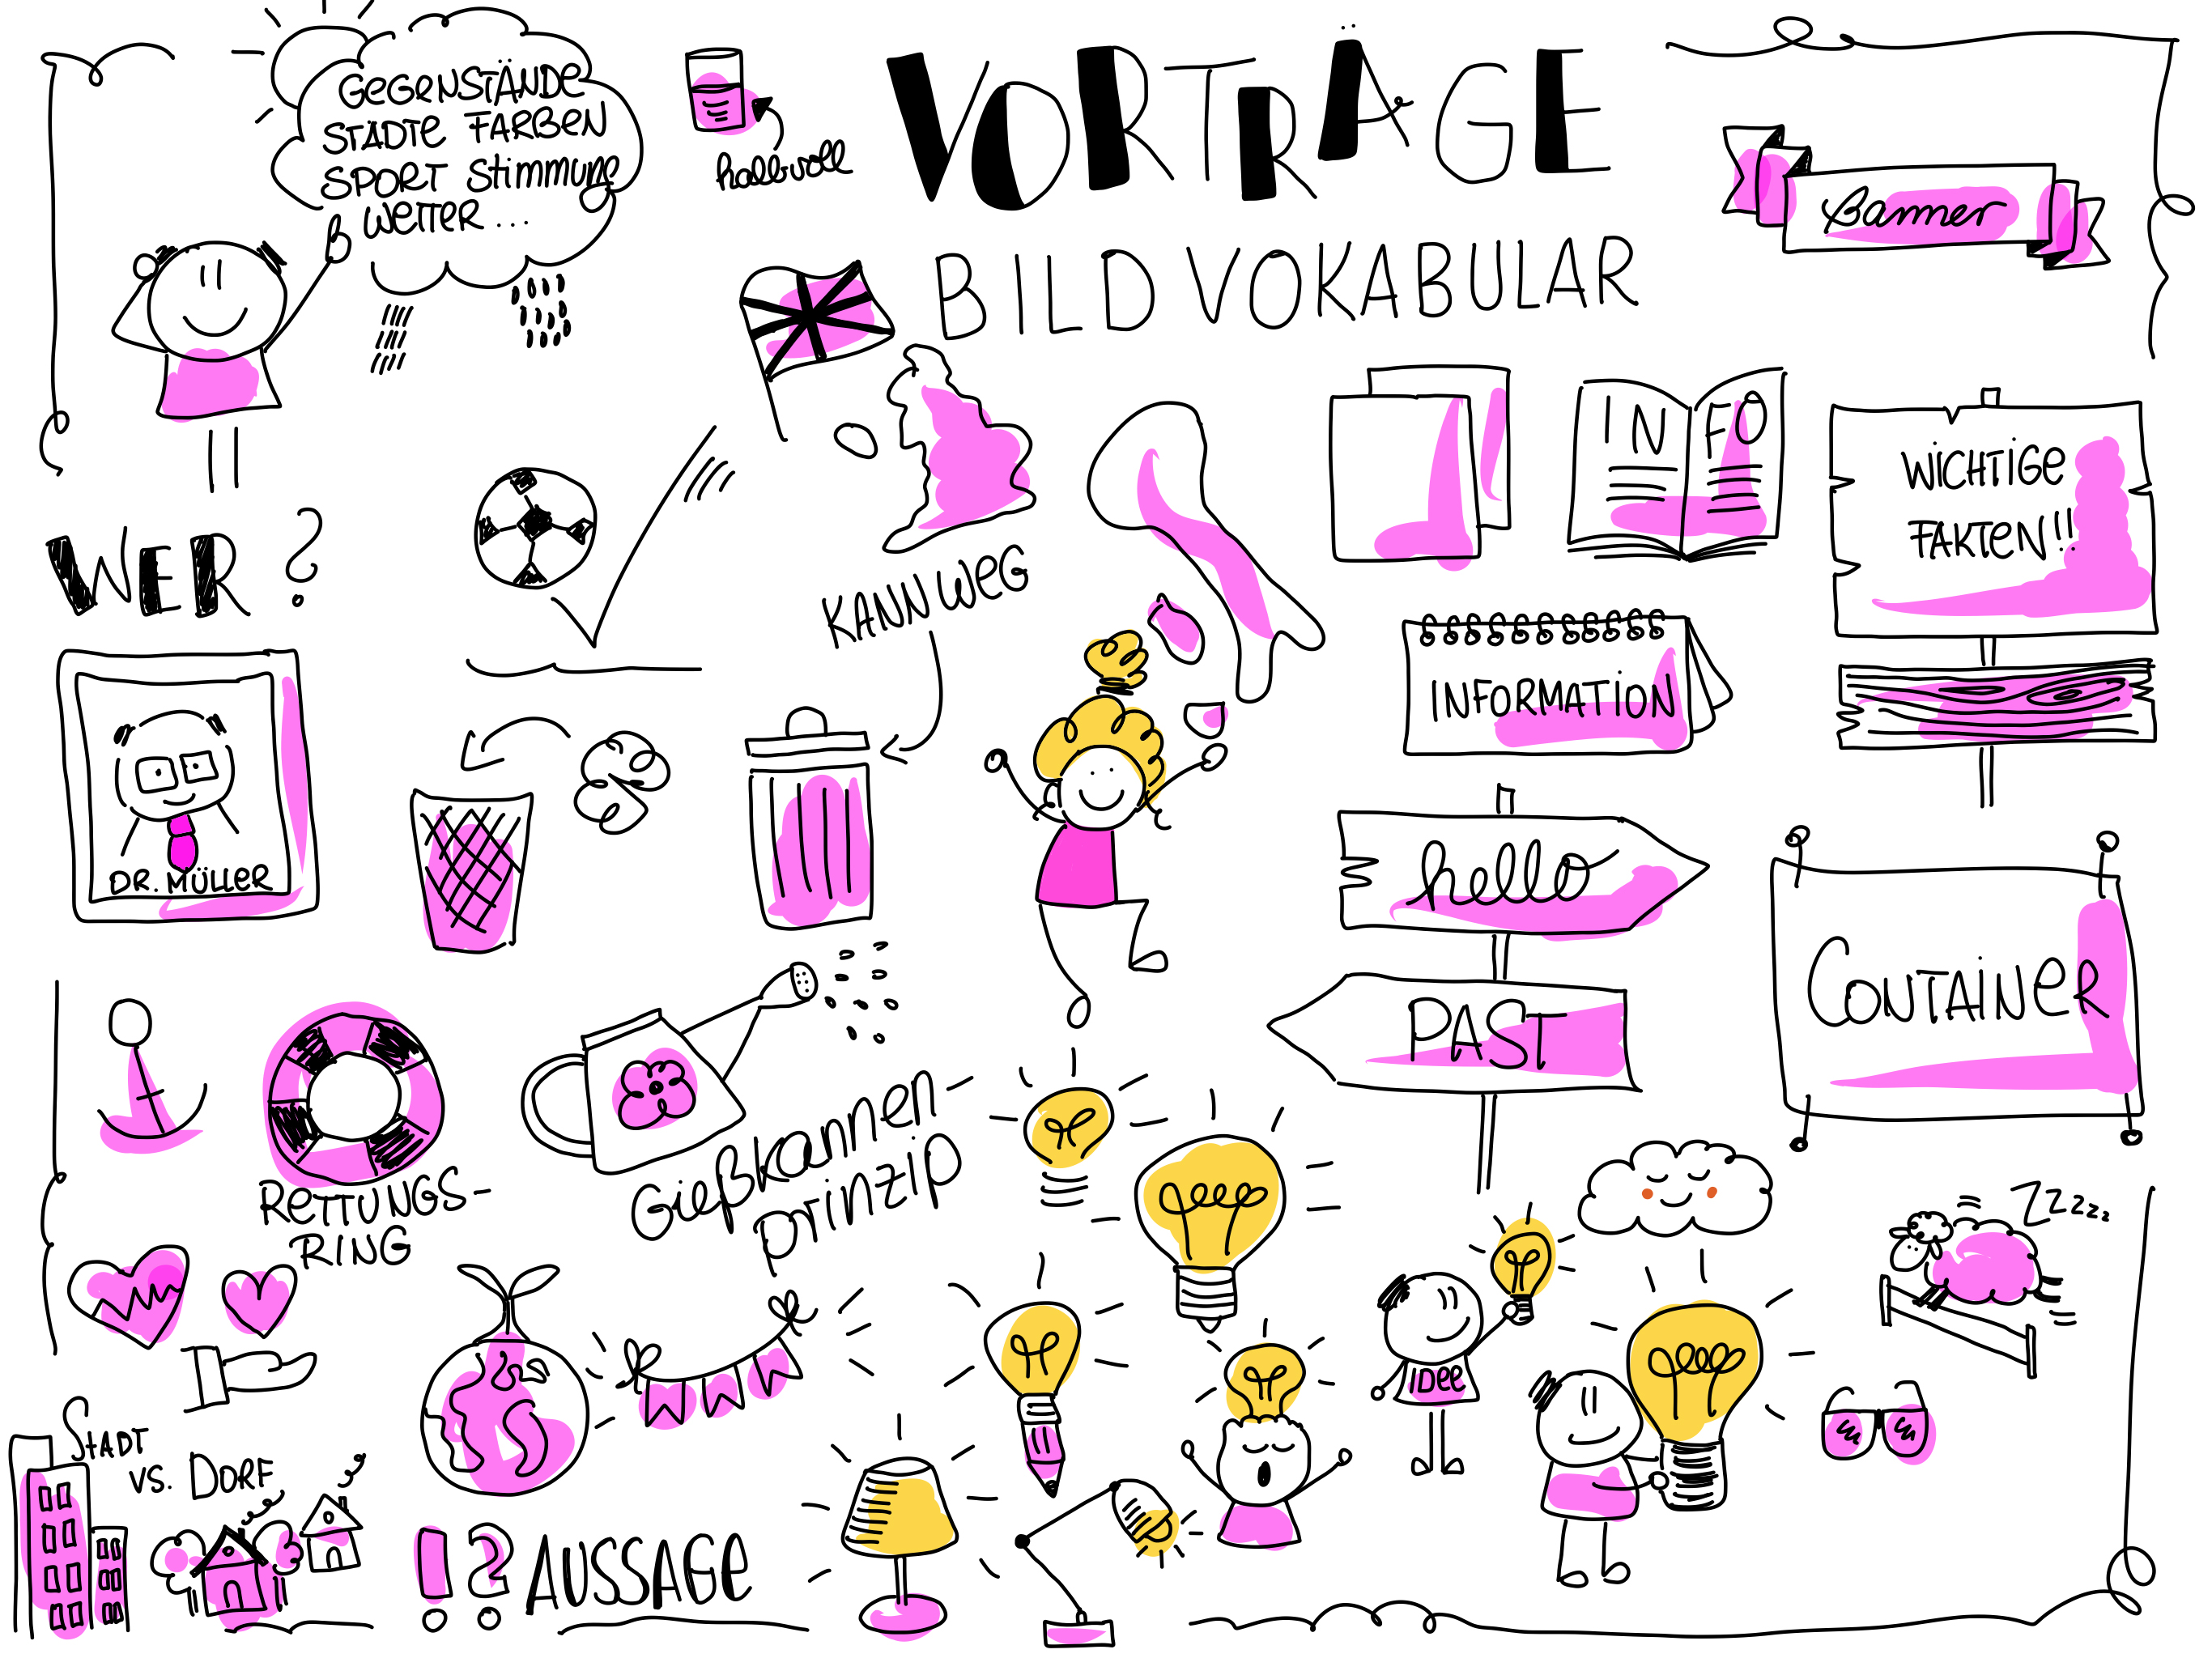 GEGENSTÄNDE
STÄDTE FARBEN
SPORT Stimmung
WETTER...
halbvoll
VORTRÄGE
BILDVOKABULAR
Banner
WER?
KANN WEG
INFO
WICHTIGE
FAKTEN!!
INFORMATION
DR. MÜLLER
hello
PAST
CONTAINER
RETTUNGS-
RING
Gießkannen-
prinzip
ZZZZZ
IDEE
STADT
VS. DORF
!? AUSSAGE